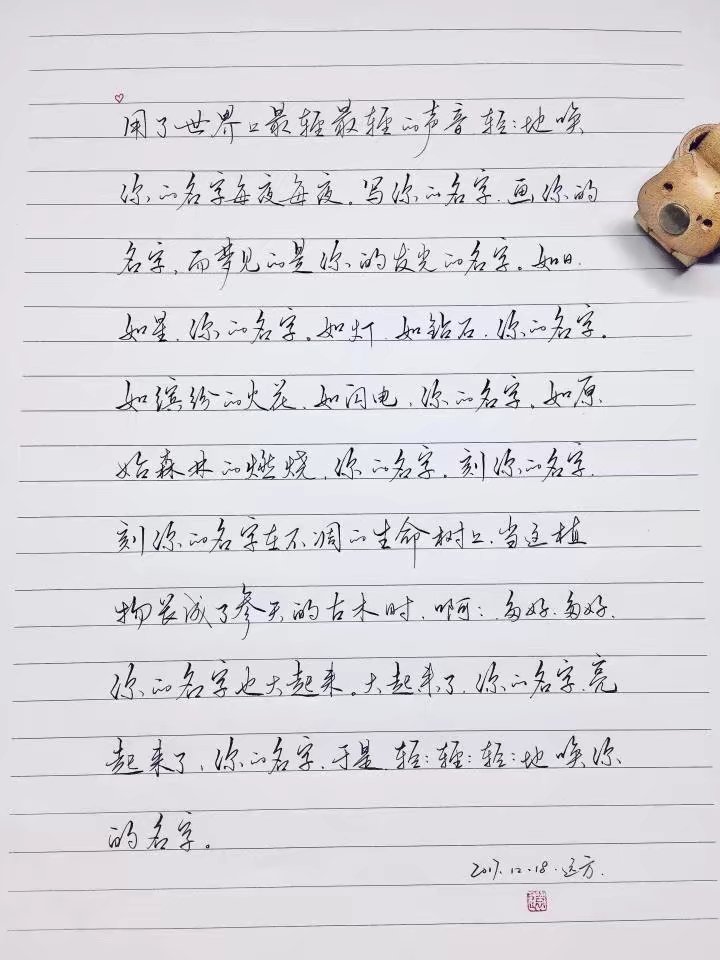 用了世界上最轻最轻的声音轻:地唤
你的名字每夜每夜。写你的名字.画你的
名字,而梦见的是你的发光的名字。如日.
如星,你的名字。如灯.如钻石.你的名字。
如缤纷的火花、如闪电、你的名字。如原
始森林的燃烧,你的名字。刻你的名字.
刻你的名字在不凋的生命树上.当这植
物长成了参天的古木时.啊啊:多好.多好.
你的名字也大起来。大起来了.你的名字.亮
起来了、你的名字.于是.轻:轻:轻:地唤你
的名字。
2017.12.18.远方.